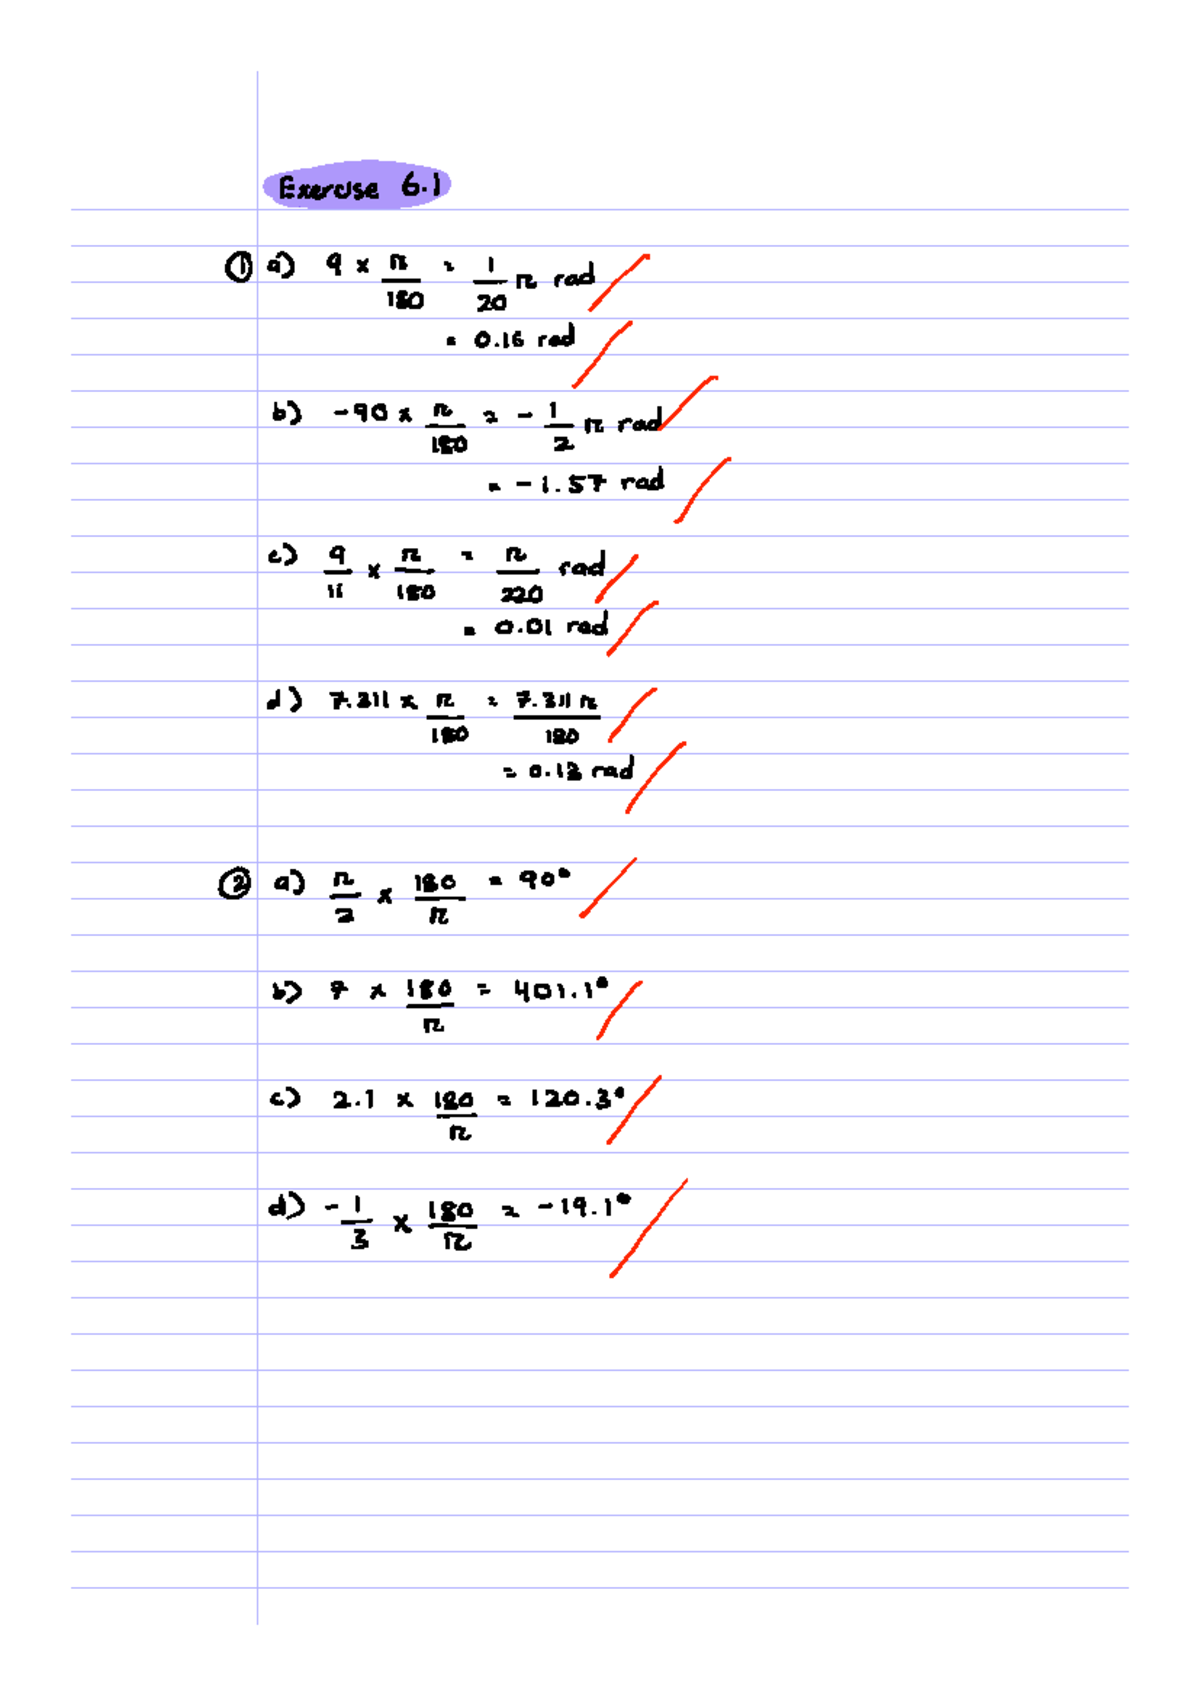 Exercise 6.1
① a) 9 × π/180 = 1/20 π rad
= 0.16 rad
b) -90 × π/180 = -1/2 π rad
= -1.57 rad
c) 9/11 × π/180 = π/220 rad
= 0.01 rad
d) 7.311 × π/180 = 7.311π/180
= 0.13 rad
② a) π/2 × 180/π = 90°
b) 7 × 180/π = 401.1°
c) 2.1 × 180/π = 120.3°
d) -1/3 × 180/π = -19.1°